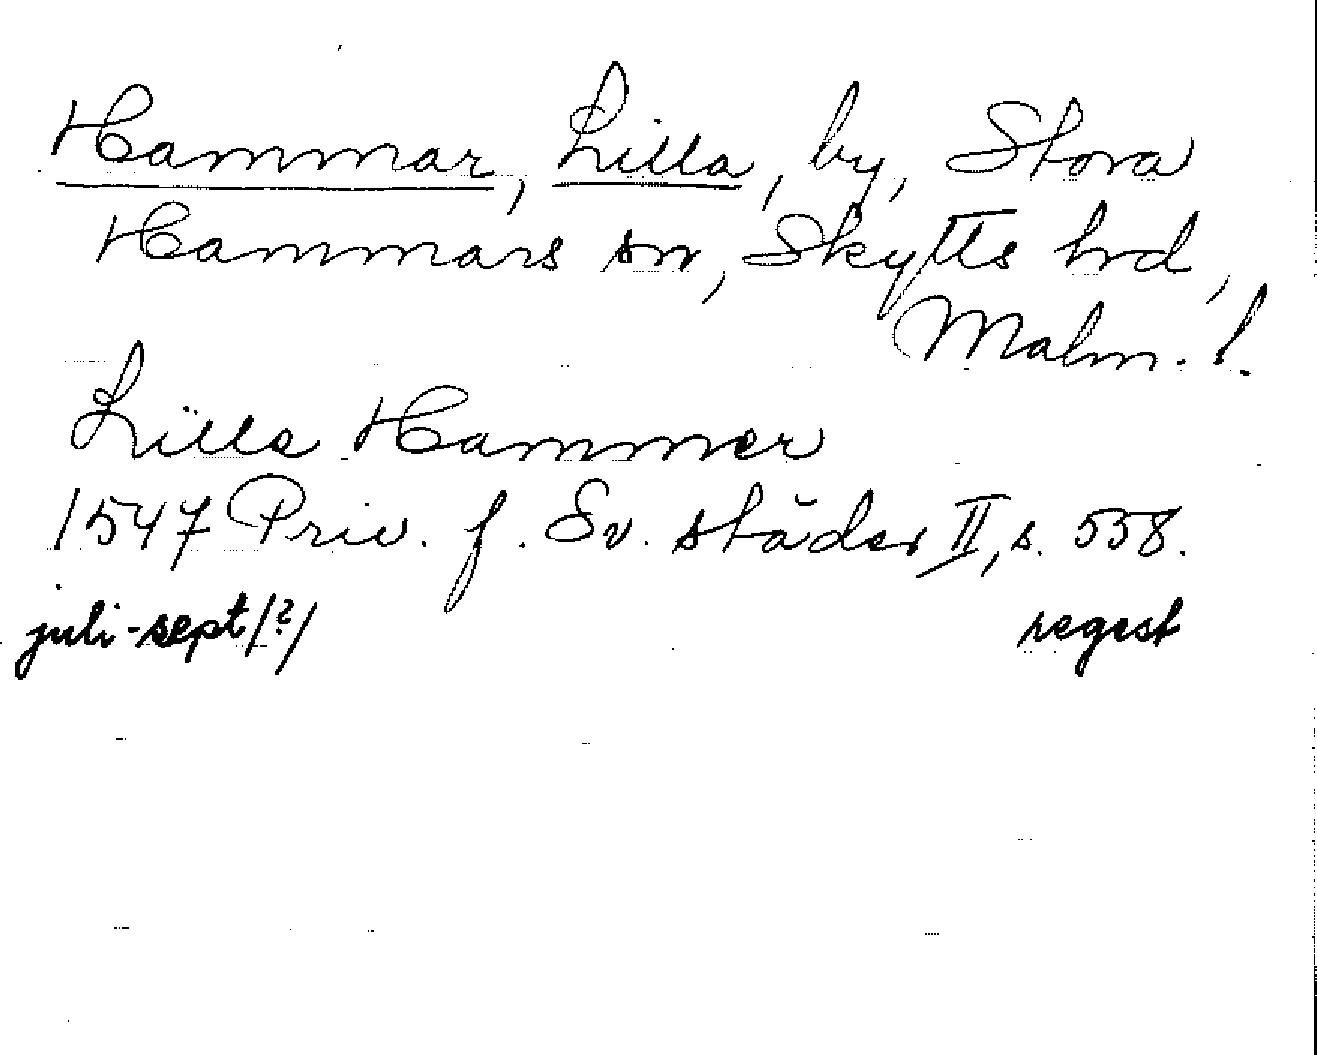 Hammar, Lilla, by, Stora
Hammars sn, Skytts hrd,
Malm. l.
Lille Hammer
1547 Priv. f. Sv. städer II, s. 558.
juli-sept/?/ regest